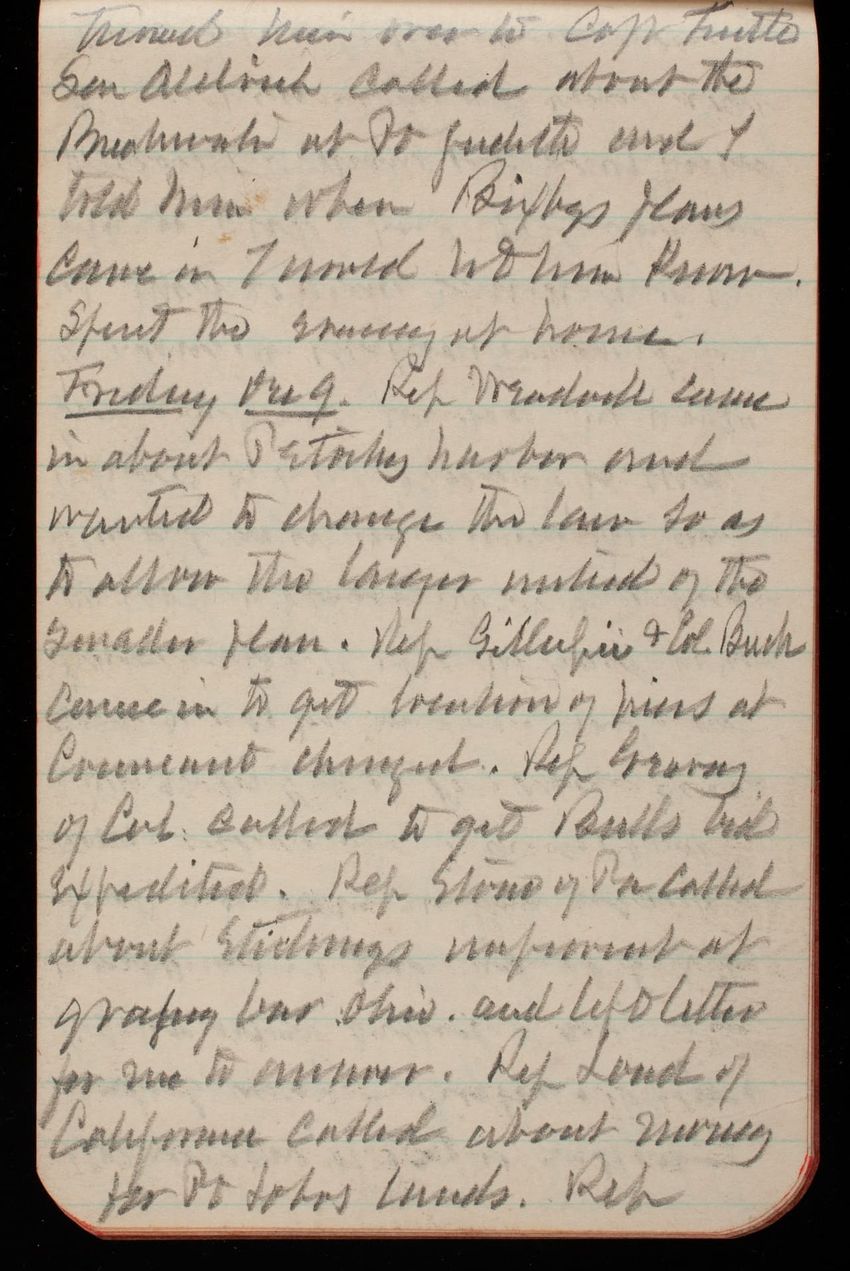 turned him over to Capt Tuttle
Sen Aldrich called about the
Breakwater at Pt Judith and I
told him when Bixbys plans
came in I would let him know.
Spent the evening at home.
Friday Dec 9. Rep came
in about Petosky harbor and
wanted to change the law so as
to allow the larger instead of the
smaller plan. Rep Gillespie & Col. Buck
came in to get location of piers at
Conneaut changed. Rep
of Col. called to get Bulls bid
expedited. Rep Stone of Pa called
about Stickneys at
bar Ohio. and left letter
for me to answer. Rep Loud of
California called about money
for Pt Lobos lands. Rep